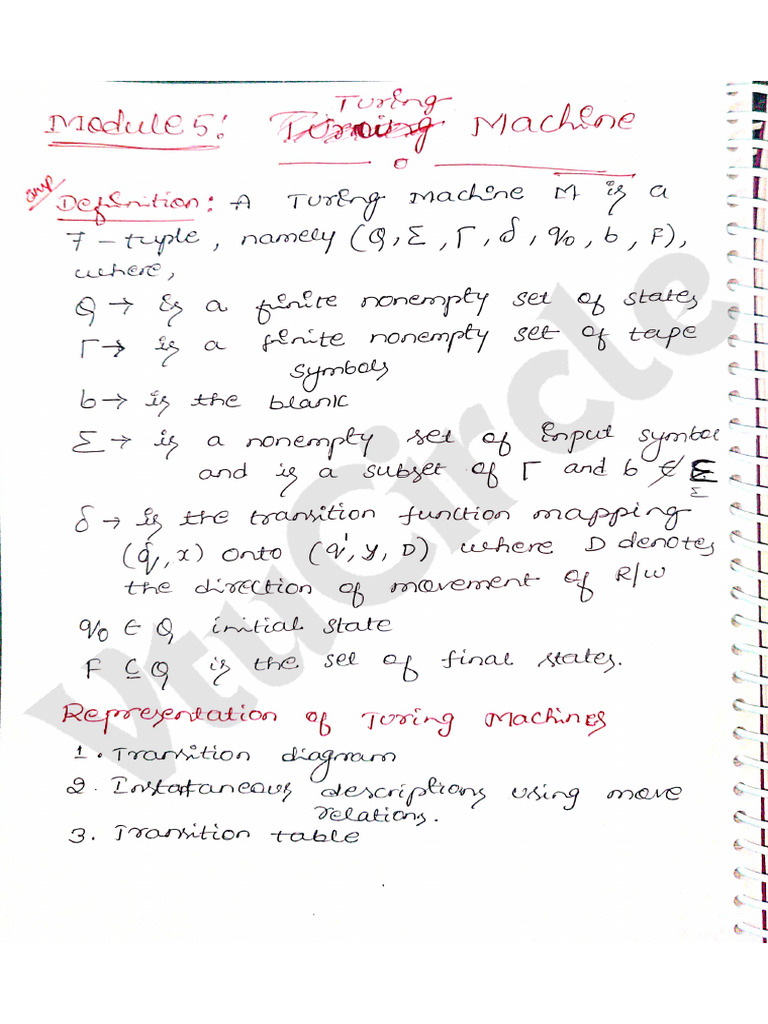 Turing
Module 5: Turning Machine
imp
Definition: A Turing Machine M is a
7-tuple, namely (Q, Σ, Γ, δ, q0, b, F),
where,
Q → is a finite nonempty set of states
Γ → is a finite nonempty set of tape
symbols
b → is the blank
Σ → is a nonempty set of input symbol
and is a subset of Γ and b ∉ Σ
Σ
δ → is the transition function mapping
(q, x) onto (q', y, D) where D denotes
the direction of movement of R/W
q0 ∈ Q initial state
F ⊆ Q is the set of final states.
Representation of Turing Machines
1. Transition diagram
2. Instataneous descriptions using move
relations.
3. Transition table
VtuCircle